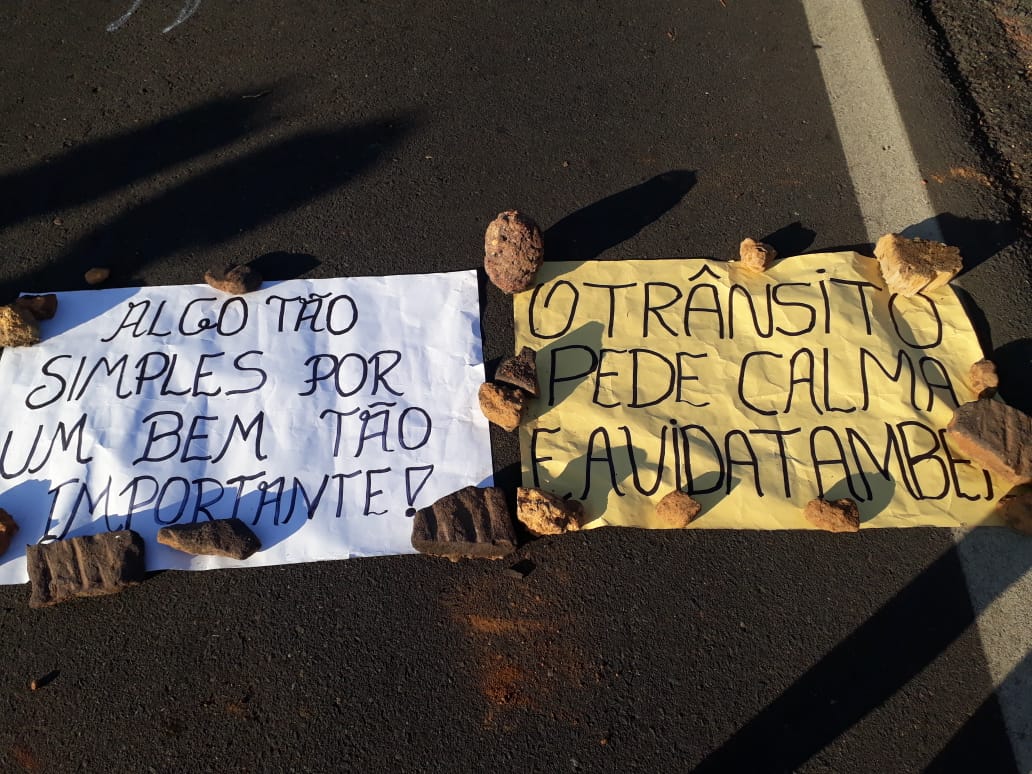 ALGO TÃO
SIMPLES POR
UM BEM TÃO
IMPORTANTE!
O TRÂNSITO
PEDE CALMA
E A VIDA TAMBEM